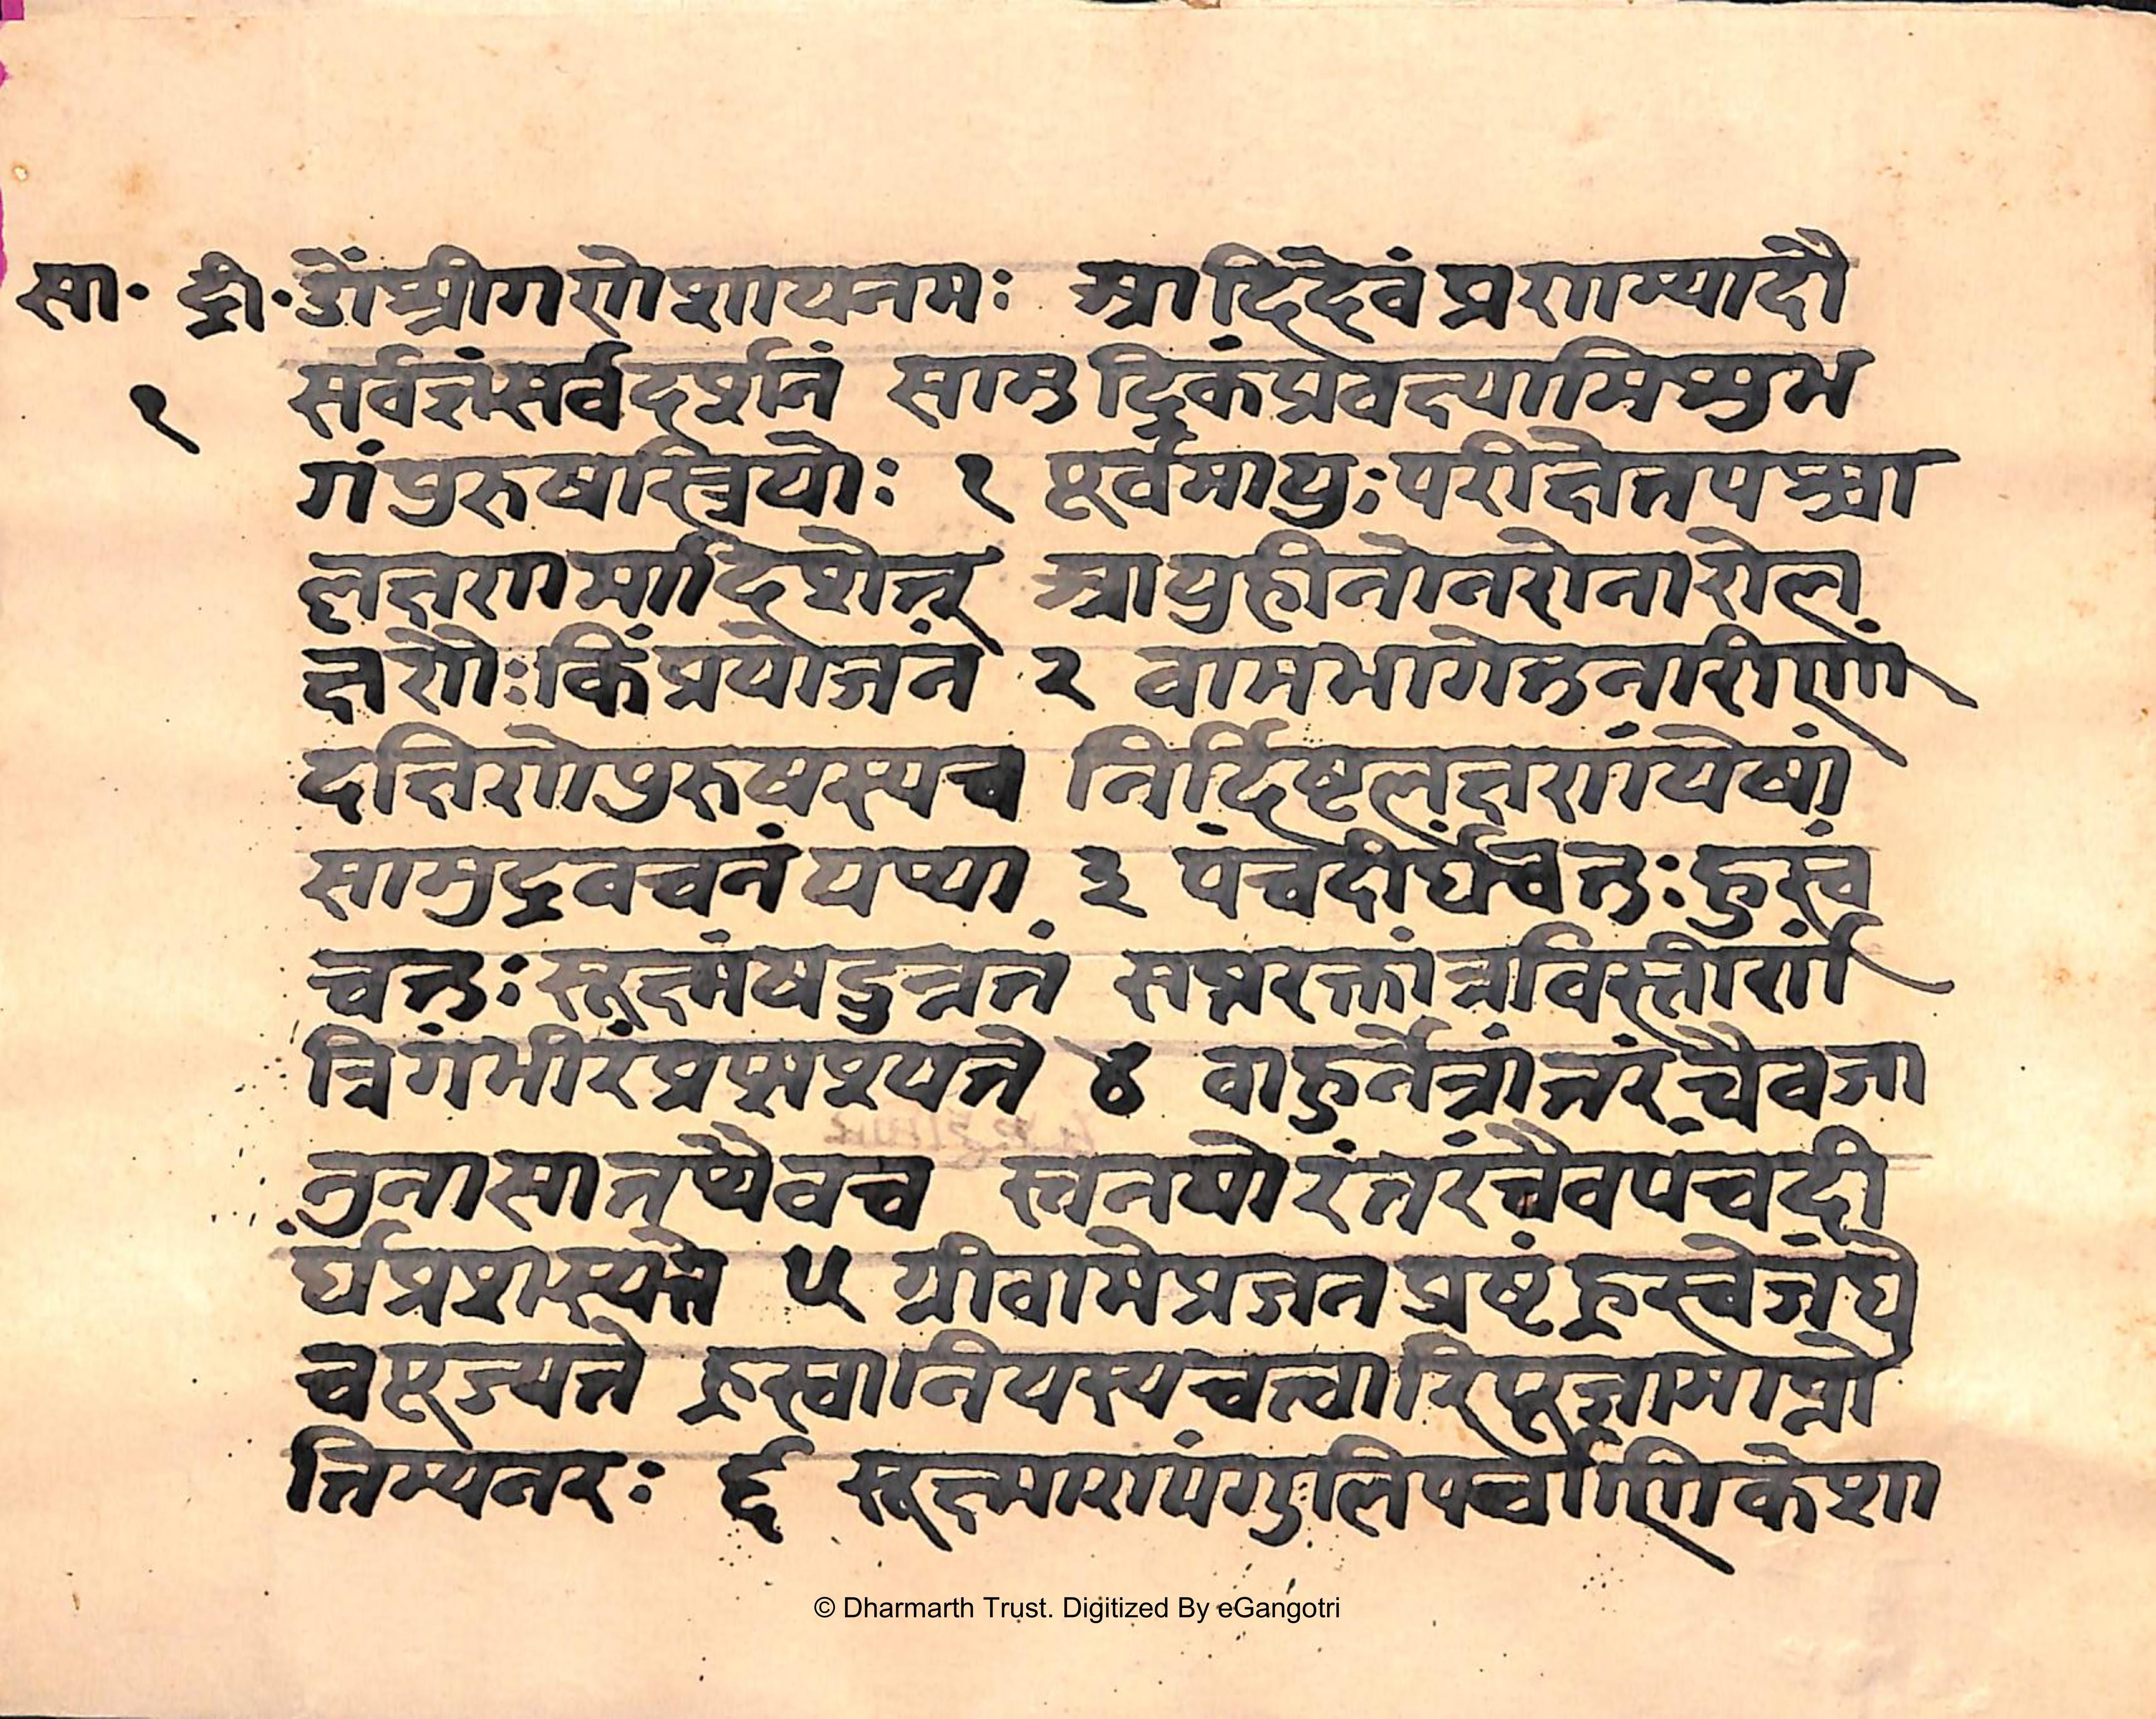 सा॰ द्री॰ ओं श्रीगणेशायनमः आदिदेवंप्रणाम्यादौ
१ सर्वज्ञंसर्वदर्शनं सामुद्रिकंप्रवक्ष्यामिशुभ
गंपुरुषस्त्रियोः १ पूर्वमायुःपरीक्षेतपश्चा
लक्षणमादिशेत् आयुहीनोनरोनारील
क्षणैःकिंप्रयोजनं २ वामभागेतुनारीणां
दक्षिणेपुरुषस्यच निर्दिष्टलक्षणंयेषां
सामुद्रवचनंयथा ३ पंचदीर्घंचतुःह्रस्वं
चतुःसूक्ष्मंषडुन्नतं सप्तरक्तंत्रविस्तीर्णं
त्रिगंभीरंप्रशस्यते ४ वाहुर्नेत्रांतरंचैवजा
नुनासातथैवच स्तनयोरंतरंचैवपंचदी
र्घंप्रशस्यते ५ ग्रीवामेप्रजनप्रष्टंह्रस्वेजंघे
चपूज्यते ह्रस्वानियस्यचत्वारिपूजामाप्नो
तिम्यनरः ६ सूक्ष्माण्यंगुलिपर्वाणिकेशा
© Dharmarth Trust. Digitized By eGangotri